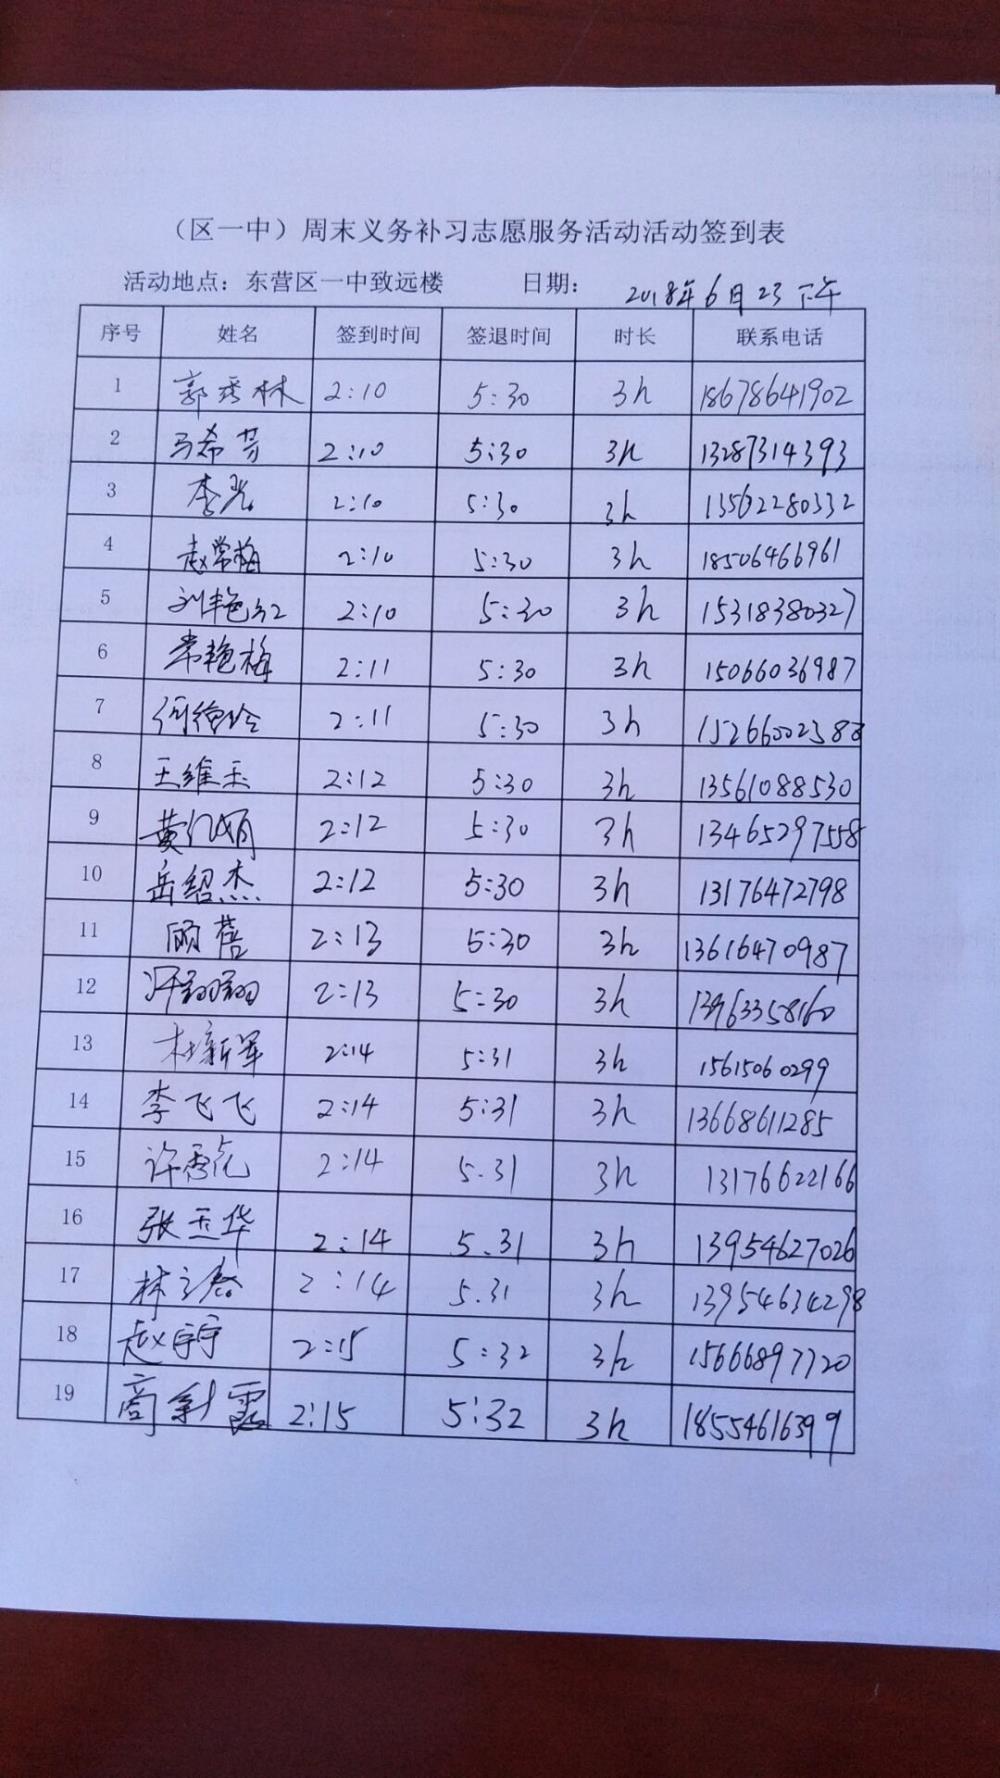 （区一中）周末义务补习志愿服务活动活动签到表
活动地点：东营区一中致远楼 日期： 2018年6月23下午
序号 姓名 签到时间 签退时间 时长 联系电话
1 郭秀林 2:10 5:30 3h 18678641902
2 马希芳 2:10 5:30 3h 13287314393
3 李光 2:10 5:30 3h 13562280332
4 赵常梅 2:10 5:30 3h 18506466961
5 刘艳红 2:10 5:30 3h 15318380327
6 常艳梅 2:11 5:30 3h 15066036987
7 2:11 5:30 3h
8 王维玉 2:12 5:30 3h 13561088530
9 2:12 5:30 3h 13465297558
10 岳绍杰 2:12 5:30 3h 13176472798
11 顾蓓 2:13 5:30 3h 13616470987
12 2:13 5:30 3h
13 杜新军 2:14 5:31 3h 15615060299
14 李飞飞 2:14 5:31 3h 13668611285
15 2:14 5.31 3h 13176622166
16 张玉华 2:14 5.31 3h 13954627026
17 2:14 5.31 3h 13954634298
18 赵宇宁 2:15 5:32 3h 15666897720
19 商彩霞 2:15 5:32 3h 18554616399